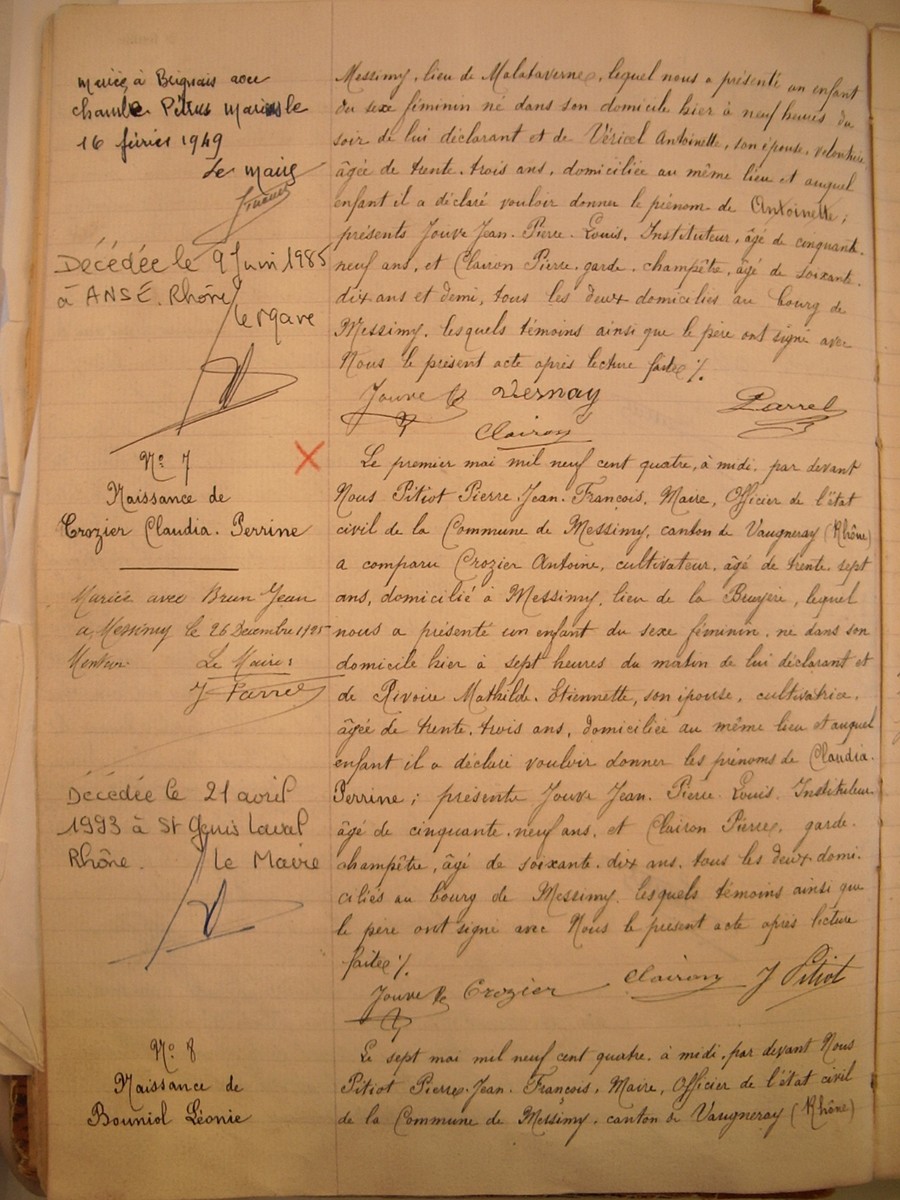 Mariée à Brignais avec
Chambe Pétrus Marius le
16 février 1949
Le Maire
Décédée le 9 Juin 1985
à ANSE. Rhône
le Maire
Messimy, lieu de Malataverne, lequel nous a présenté un enfant
du sexe féminin né dans son domicile hier à neuf heures du
soir de lui déclarant et de Véricel Antoinette, son épouse,
âgée de trente-trois ans, domiciliée au même lieu et auquel
enfant il a déclaré vouloir donner le prénom de Antoinette;
présents Jouve Jean-Pierre-Louis, Instituteur, âgé de cinquante-
neuf ans, et Clairon Pierre, garde-champêtre, âgé de soixante-
dix ans et demi, tous les deux domiciliés au bourg de
Messimy, lesquels témoins ainsi que le père ont signé avec
Nous le présent acte après lecture faite ./.
Jouve Vernay Parrel
Clairon
No 7
Naissance de
Crozier Claudia-Perrine
Mariée avec Brun Jean
à Messimy le 26 Décembre 1925
Mention
Le Maire:
J Parrel
Décédée le 21 avril
1993 à St Genis Laval
Rhône.
le Maire
Le premier mai mil neuf cent quatre, à midi, par devant
Nous Pitiot Pierre-Jean-François, Maire, Officier de l'état
civil de la Commune de Messimy, canton de Vaugneray (Rhône)
a comparu Crozier Antoine, cultivateur, âgé de trente-sept
ans, domicilié à Messimy, lieu de la Bruyère, lequel
nous a présenté un enfant du sexe féminin, né dans son
domicile hier à sept heures du matin de lui déclarant et
de Rivoire Mathilde-Etiennette, son épouse, cultivatrice,
âgée de trente-trois ans, domiciliée au même lieu et auquel
enfant il a déclaré vouloir donner les prénoms de Claudia-
Perrine; présents Jouve Jean-Pierre-Louis, Instituteur
âgé de cinquante-neuf ans, et Clairon Pierre, garde-
champêtre, âgé de soixante-dix ans, tous les deux domi-
ciliés au bourg de Messimy, lesquels témoins ainsi que
le père ont signé avec Nous le présent acte après lecture
faite ./.
Jouve Crozier Clairon J Pitiot
No 8
Naissance de
Bouniol Léonie
Le sept mai mil neuf cent quatre, à midi, par devant Nous
Pitiot Pierre-Jean-François, Maire, Officier de l'état civil
de la Commune de Messimy, canton de Vaugneray (Rhône)